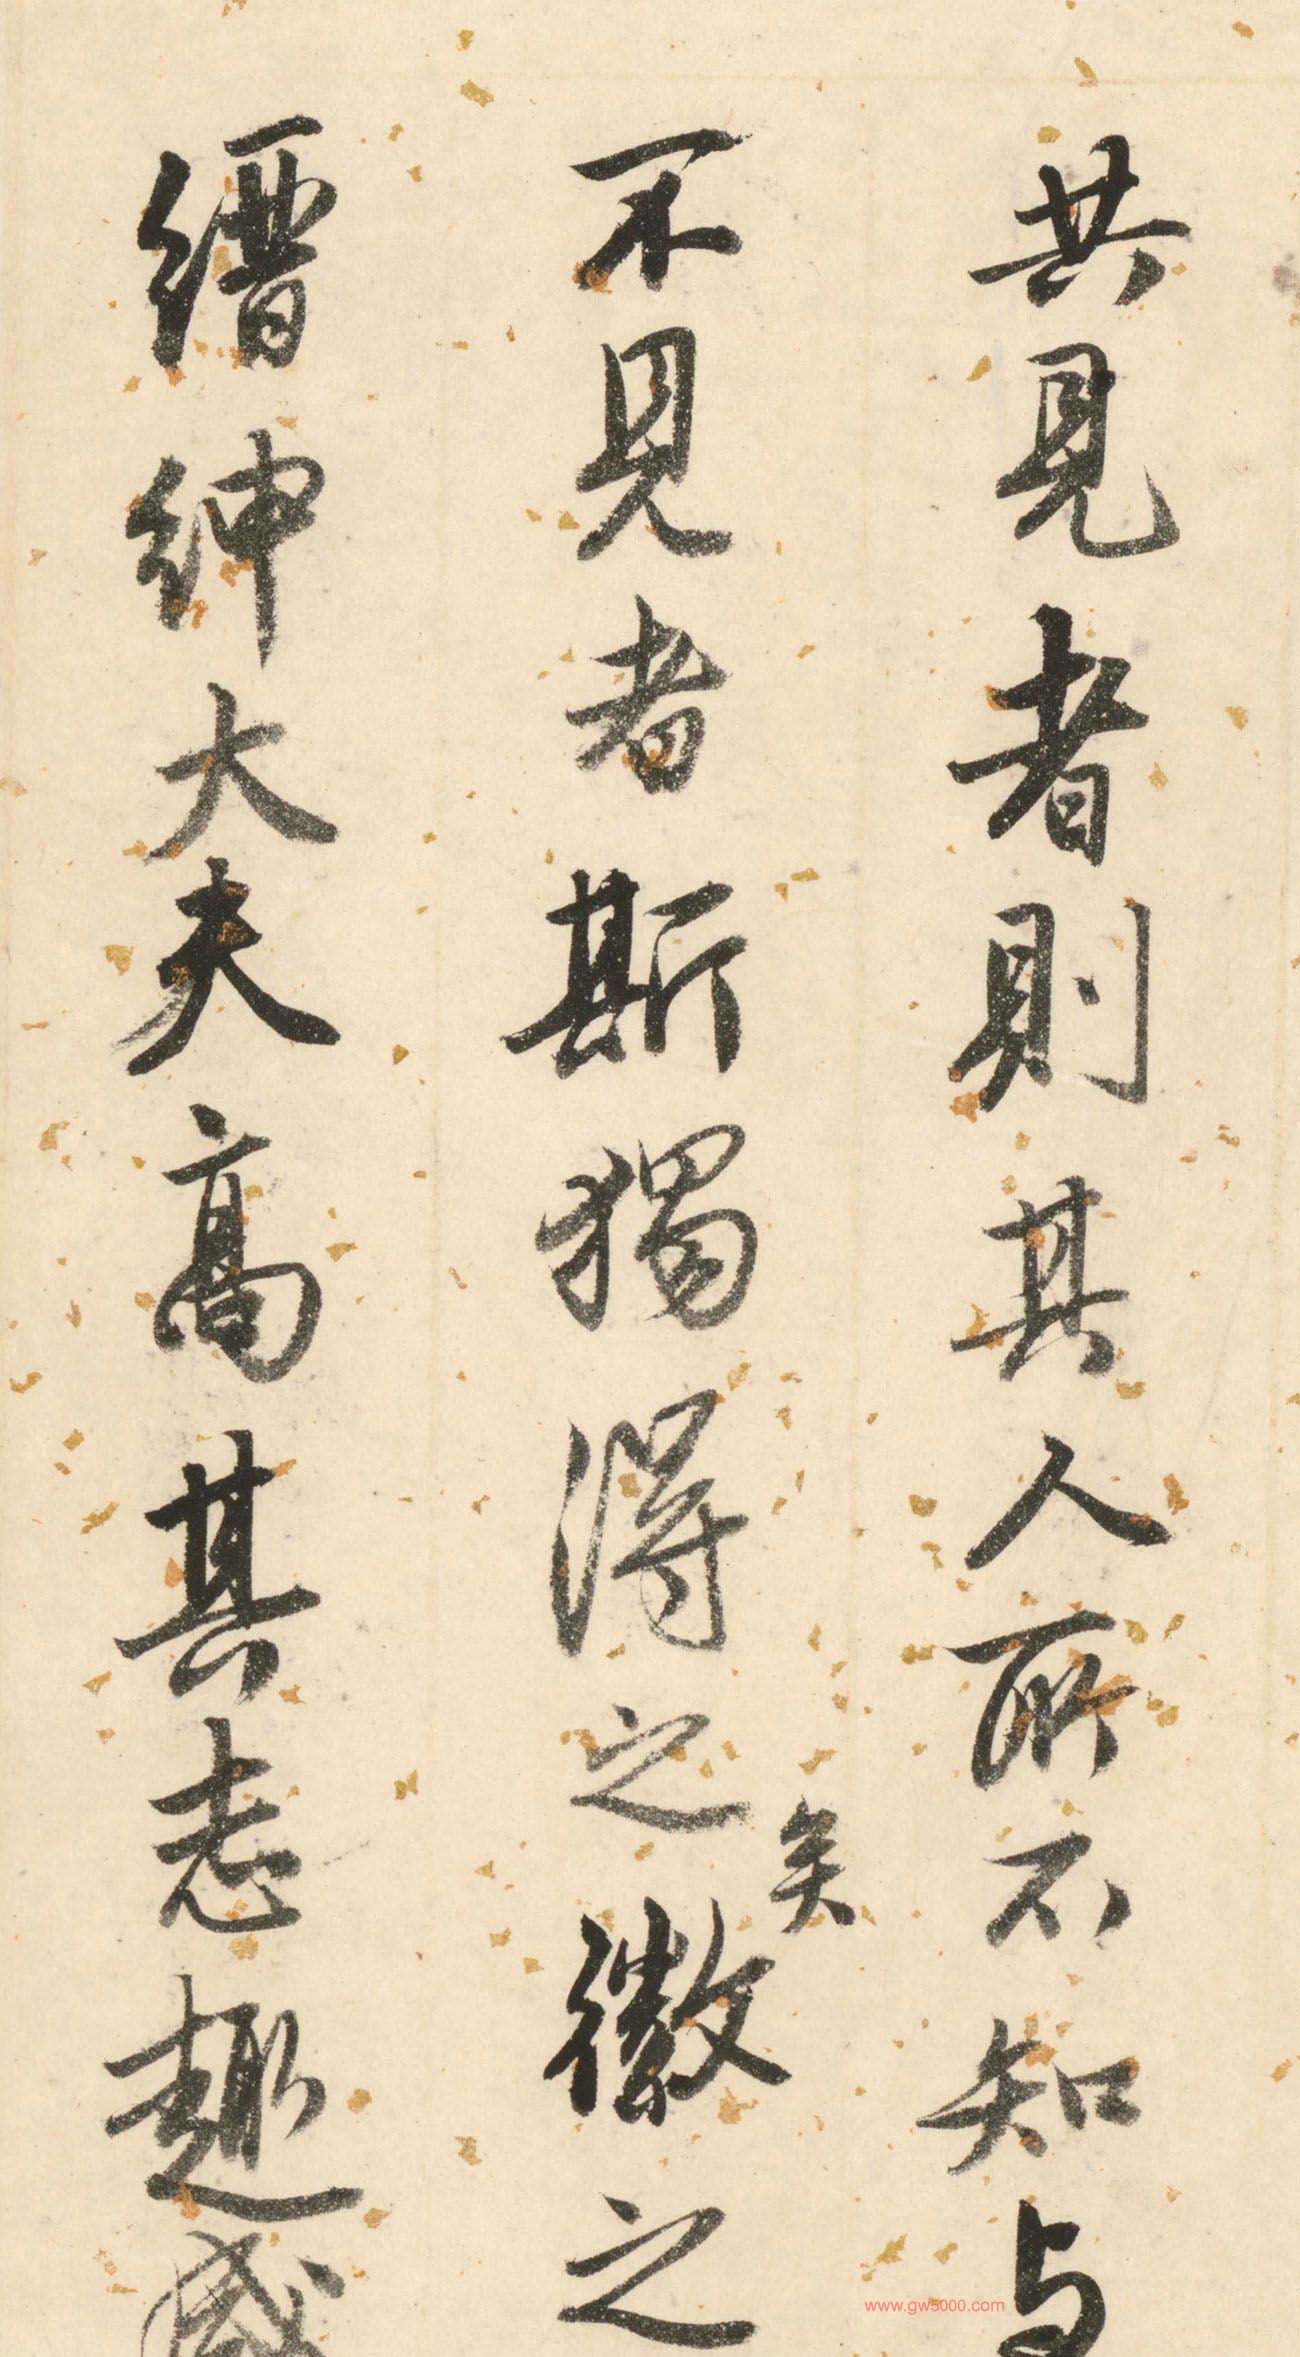 共見者則其人所不知与
不見者斯獨得之矣徵之
縉紳大夫高其志趣咸
www.gw5000.com